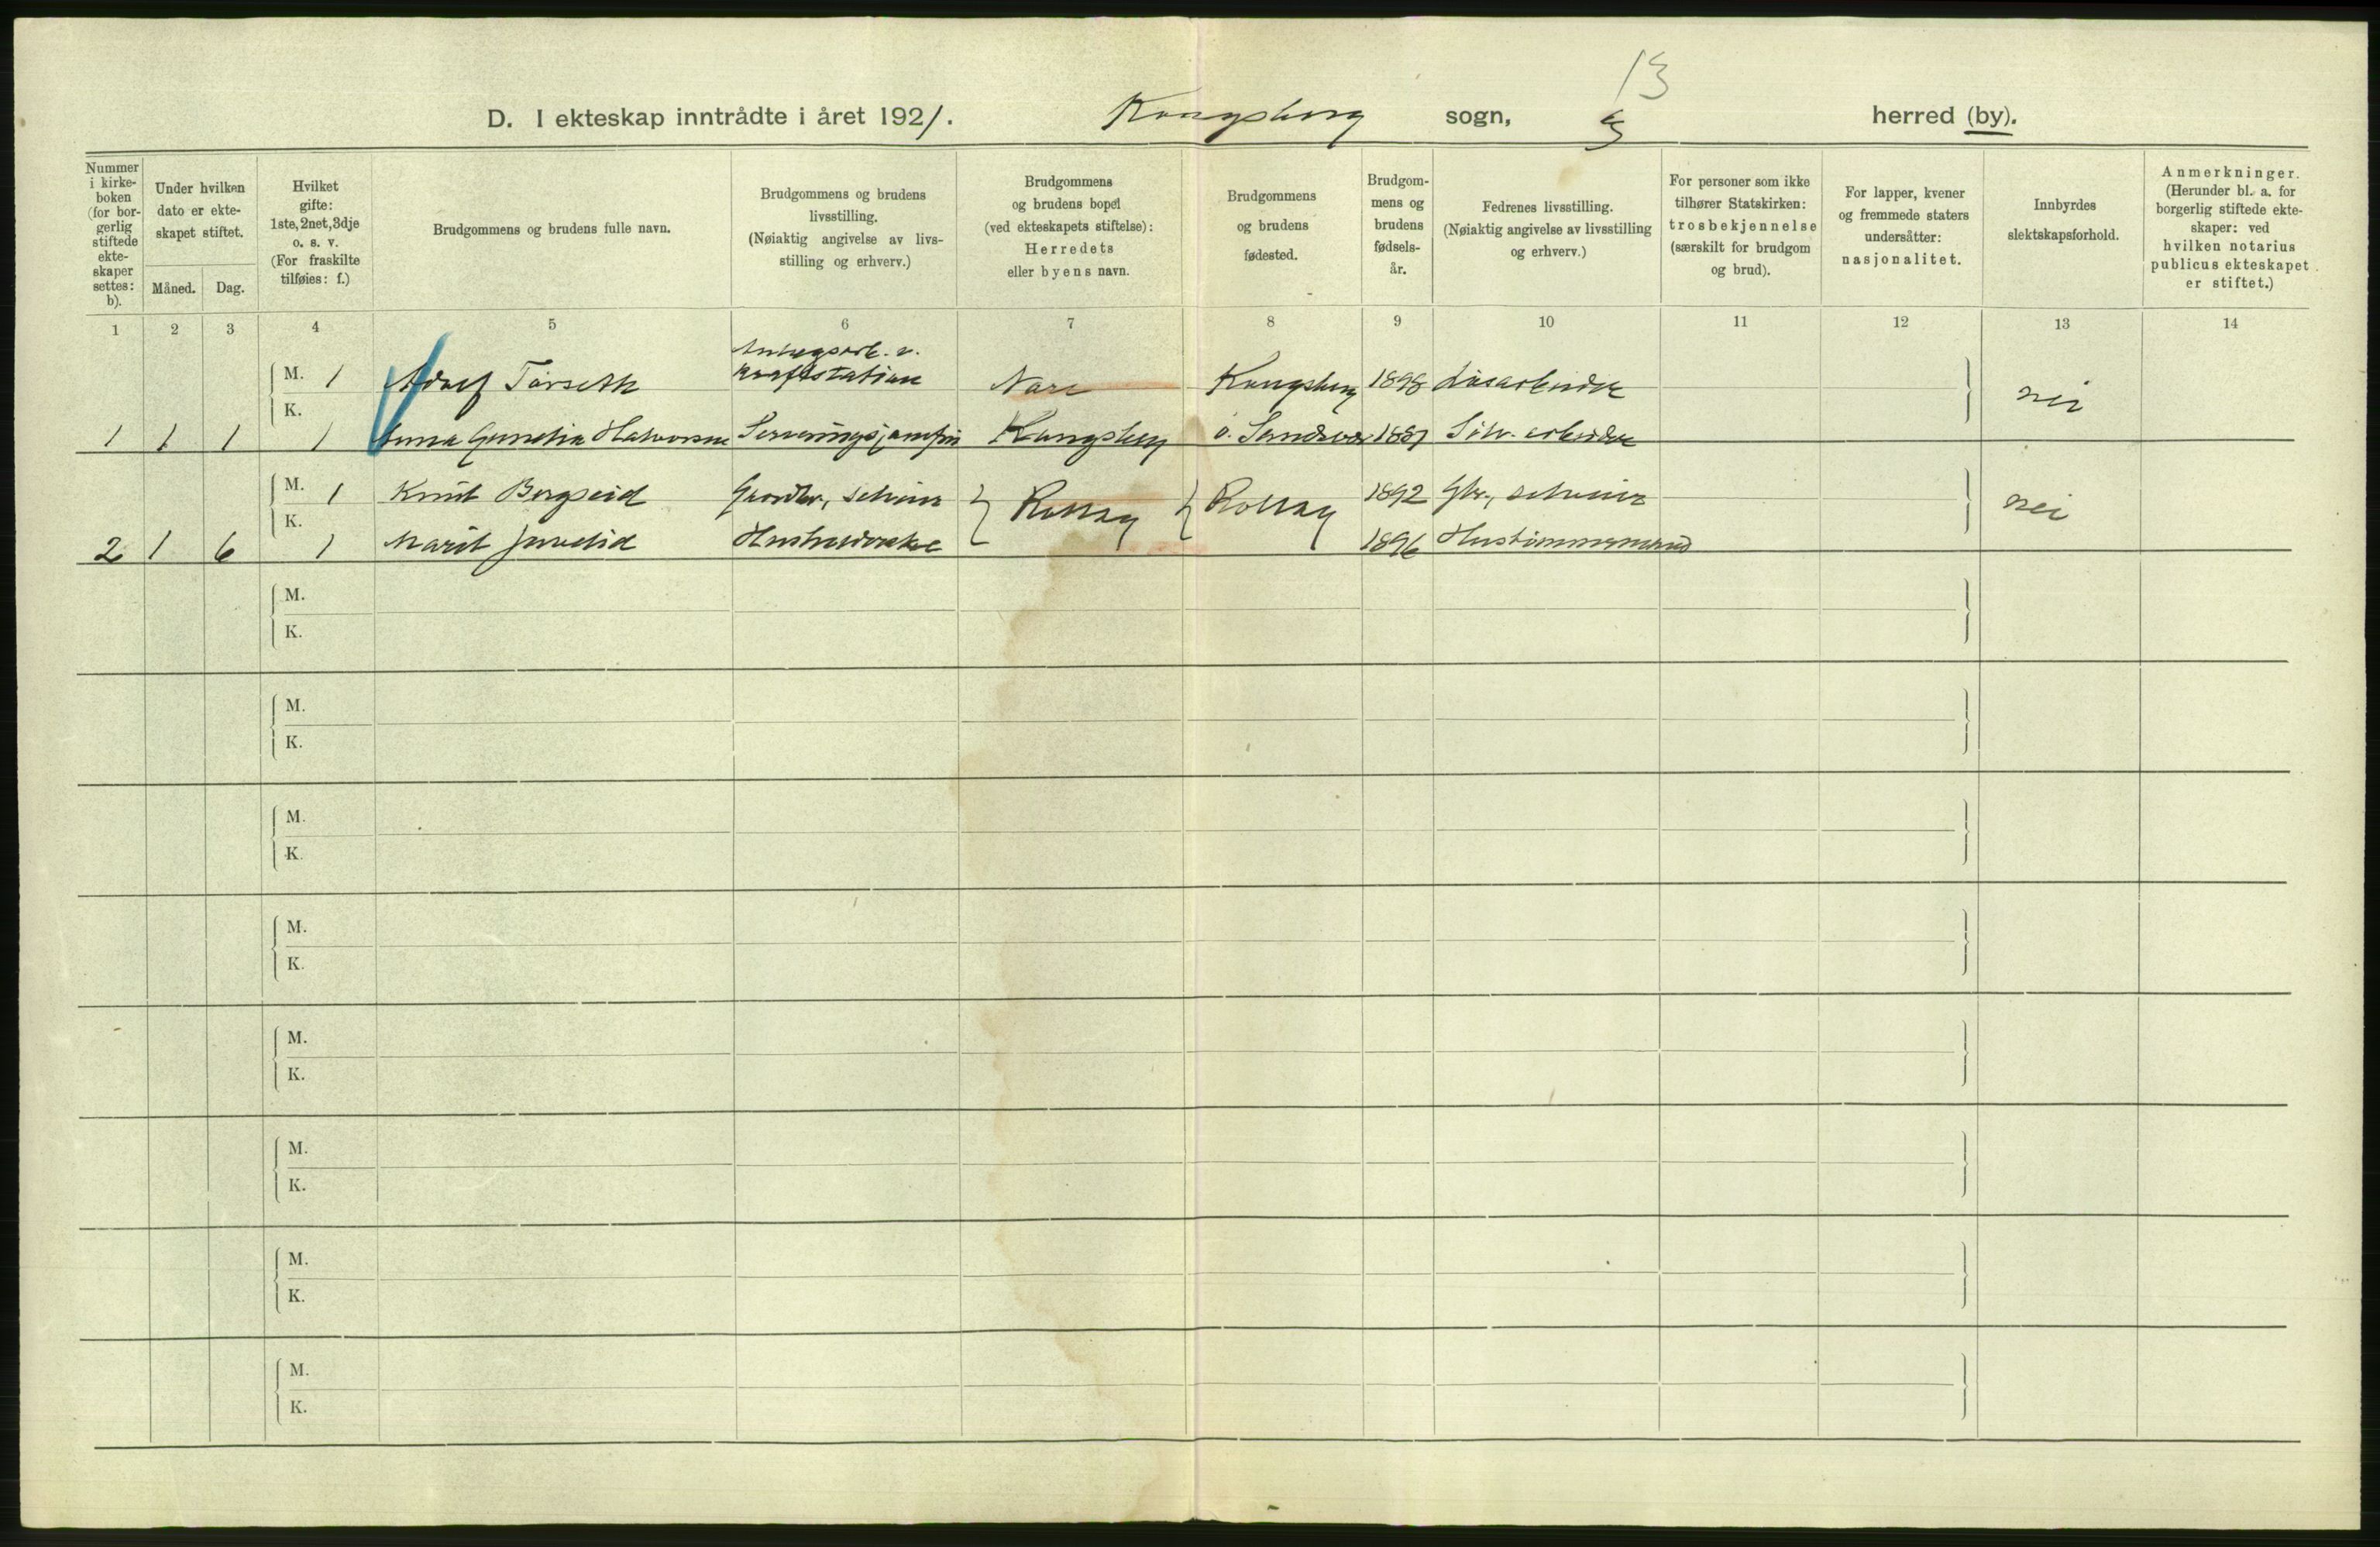 13
D. I ekteskap inntrådte i året 1921. Kongsberg sogn, herred (by).
Nummer i kirke-boken (for bor-gerlig stiftede ekte-skaper settes: b).
Under hvilken dato er ekte-skapet stiftet.
Måned. Dag.
Hvilket gifte: 1ste, 2net, 3dje o. s. v. (For fraskilte tilføies: f.)
Brudgommens og brudens fulle navn.
Brudgommens og brudens livsstilling. (Nøiaktig angivelse av livs-stilling og erhverv.)
Brudgommens og brudens bopel (ved ekteskapets stiftelse): Herredets eller byens navn.
Brudgommens og brudens fødested.
Brudgom-mens og brudens fødsels-år.
Fedrenes livsstilling. (Nøiaktig angivelse av livsstilling og erhverv.)
For personer som ikke tilhører Statskirken: trosbekjennelse (særskilt for brudgom og brud).
For lapper, kvener og fremmede staters undersåtter: nasjonalitet.
Innbyrdes slektskapsforhold.
Anmerkninger. (Herunder bl. a. for borgerlig stiftede ekte-skaper: ved hvilken notarius publicus ekteskapet er stiftet.)
1 2 3 4 5 6 7 8 9 10 11 12 13 14
Anlegsarb. v.
M. 1 Adolf Torseth kraftstation Nore Kongsberg 1898 Løsarbeider nei
K.
1 1 1 1 Anna Gunelia Halvorsen Serveringsjomfru Kongsberg ø. Sandsvær 1887 Sølv. arbeider
M. 1 Knut Bergseid Gaardbr., selveier Rollag Rollag 1892 Gbr., selveier nei
K.
2 1 6 1 Marit 1896 Hustømmermand
M.
K.
M.
K.
M.
K.
M.
K.
M.
K.
M.
K.
M.
K.
M.
K.